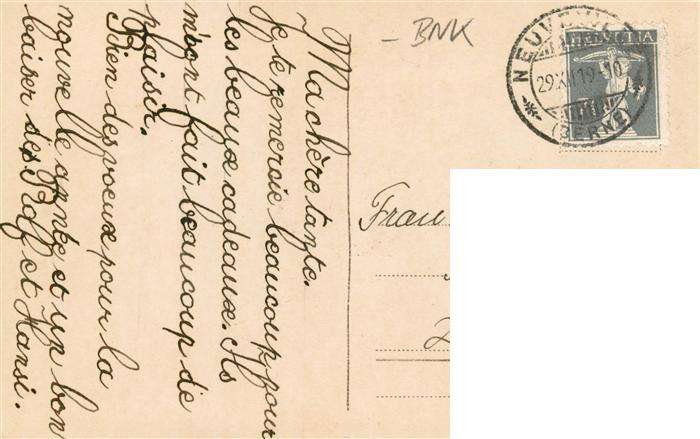 Ma chère tante.
Je te remercie beaucoup pour
tes beaux cadeaux. Ils
m'ont fait beaucoup de
plaisir.
Bien des voeux pour la
nouvelle année et un bon
baiser des Rolf et Hansi.
BNK
HELVETIA
29.XII.19.-10
(BERNE)
Frau